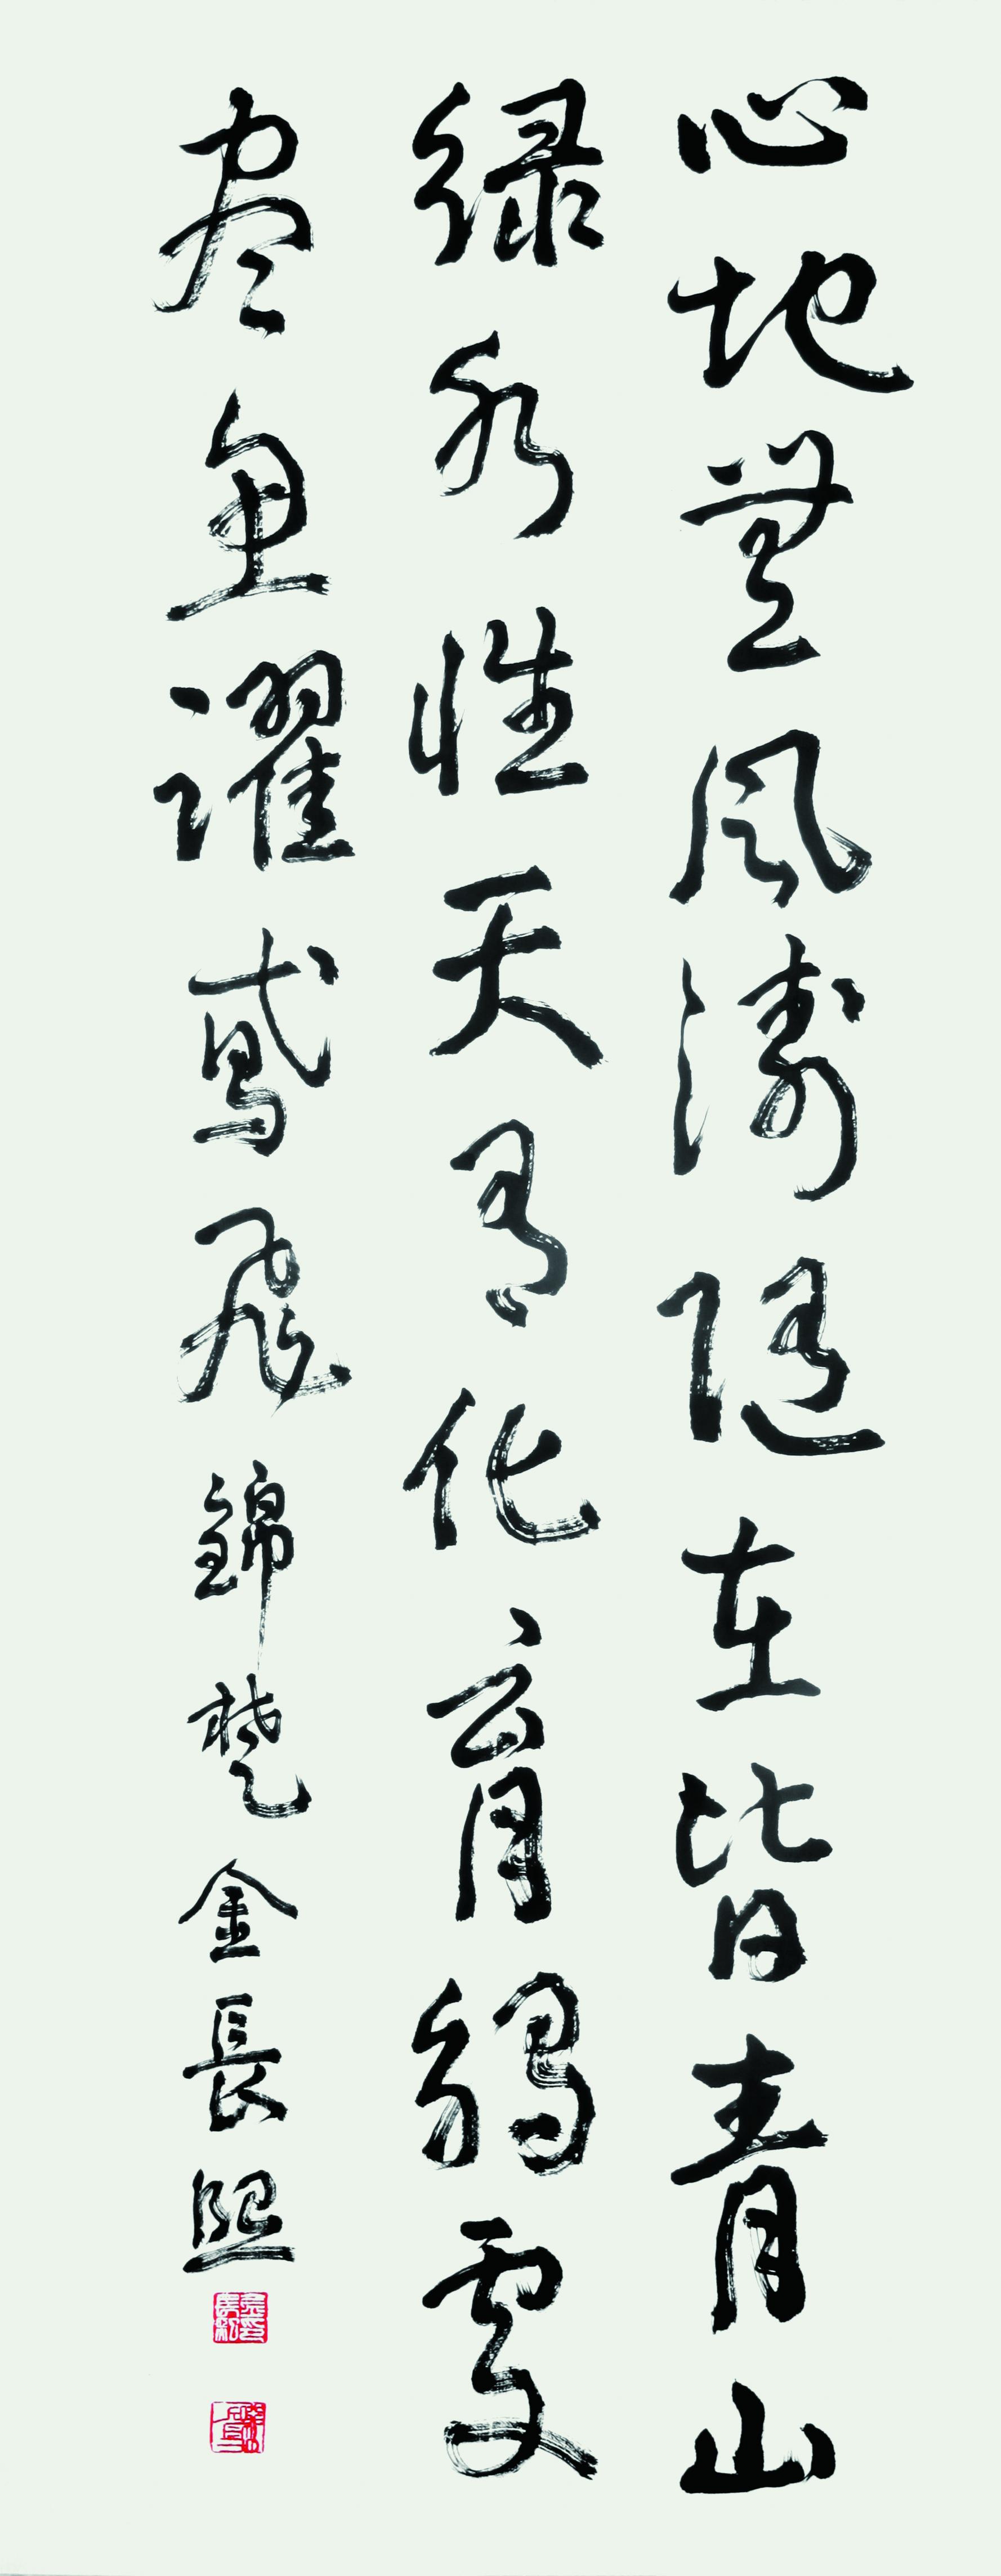 心地無風濤隨在皆青山
綠水性天有化育觸處
盡魚躍鳶飛錦楚金長熙